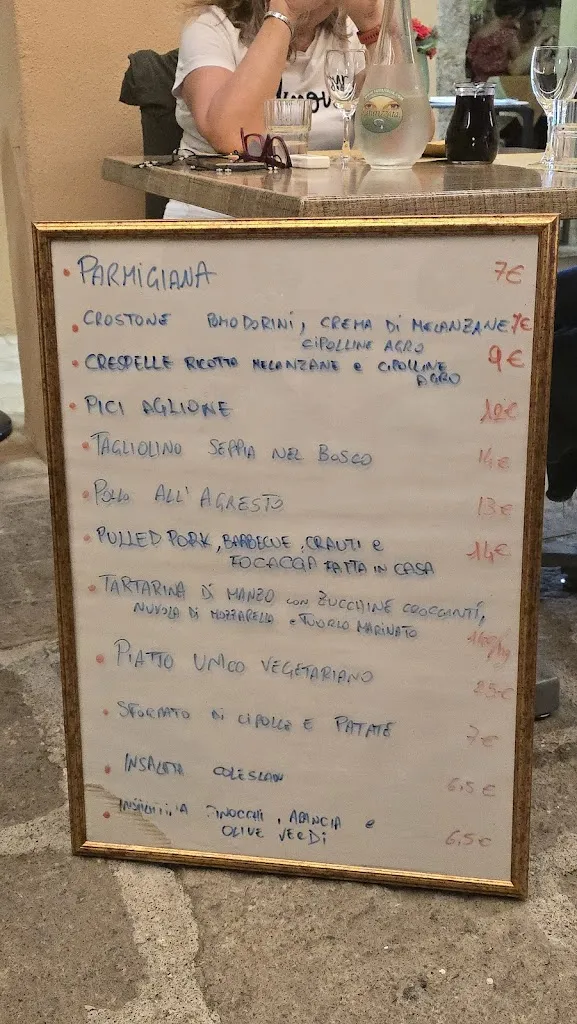 • PARMIGIANA 7€
• CROSTONE POMODORINI, CREMA DI MELANZANE 7€
CIPOLLINE AGRO
• CRESPELLE RICOTTA MELANZANE e CIPOLLINE 9€
AGRO
• PICI AGLIONE 12€
• TAGLIOLINO SEPPIA NEL BOSCO 14€
• POLLO ALL'AGRESTO 13€
• PULLED PORK, BARBECUE, CRAUTI e 14€
FOCACCIA FATTA IN CASA
• TARTARINA DI MANZO CON ZUCCHINE CROCCANTI,
NUVOLA DI MOZZARELLA e TUORLO MARINATO
• PIATTO UNICO VEGETARIANO
• SFORMATO DI CIPOLLE E PATATE 7€
• INSALATA COLESLAW 6,5€
• FINOCCHI, ARANCIA e
OLIVE VERDI 6,5€